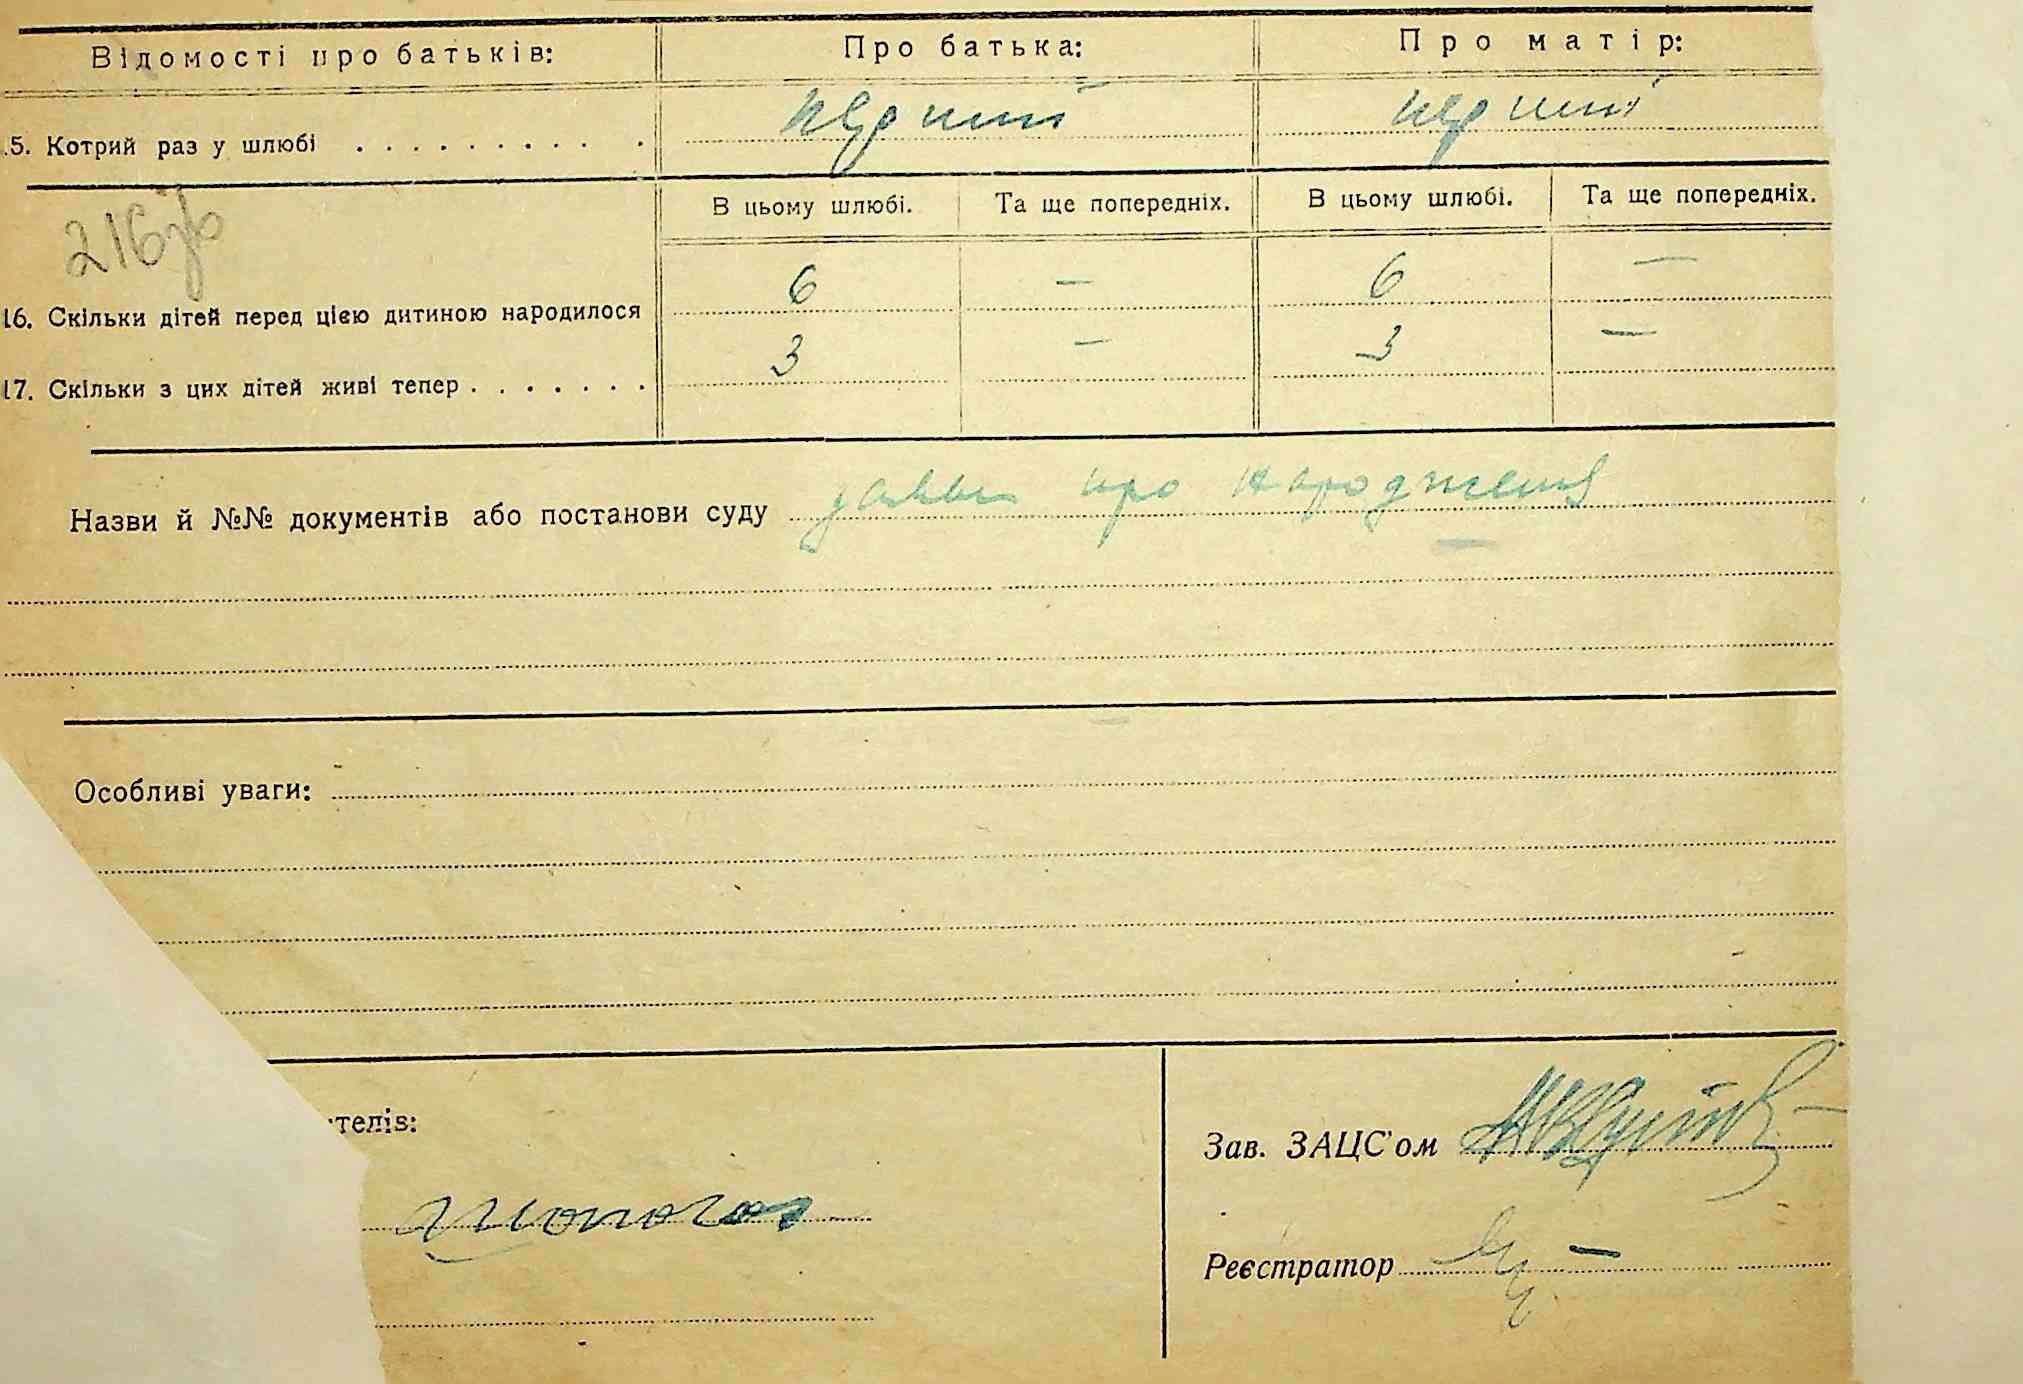 Відомості про батьків: Про батька: Про матір:
15. Котрий раз у шлюбі . . . . . . . . . . перший перший
216зв
В цьому шлюбі. Та ще попередніх. В цьому шлюбі. Та ще попередніх.
16. Скільки дітей перед цією дитиною народилося 6 — 6 —
17. Скільки з цих дітей живі тепер . . . . . . . 3 — 3 —
Назви й №№ документів або постанови суду про народження
Особливі уваги:
ителів:
Зав. ЗАЦС'ом
Реєстратор